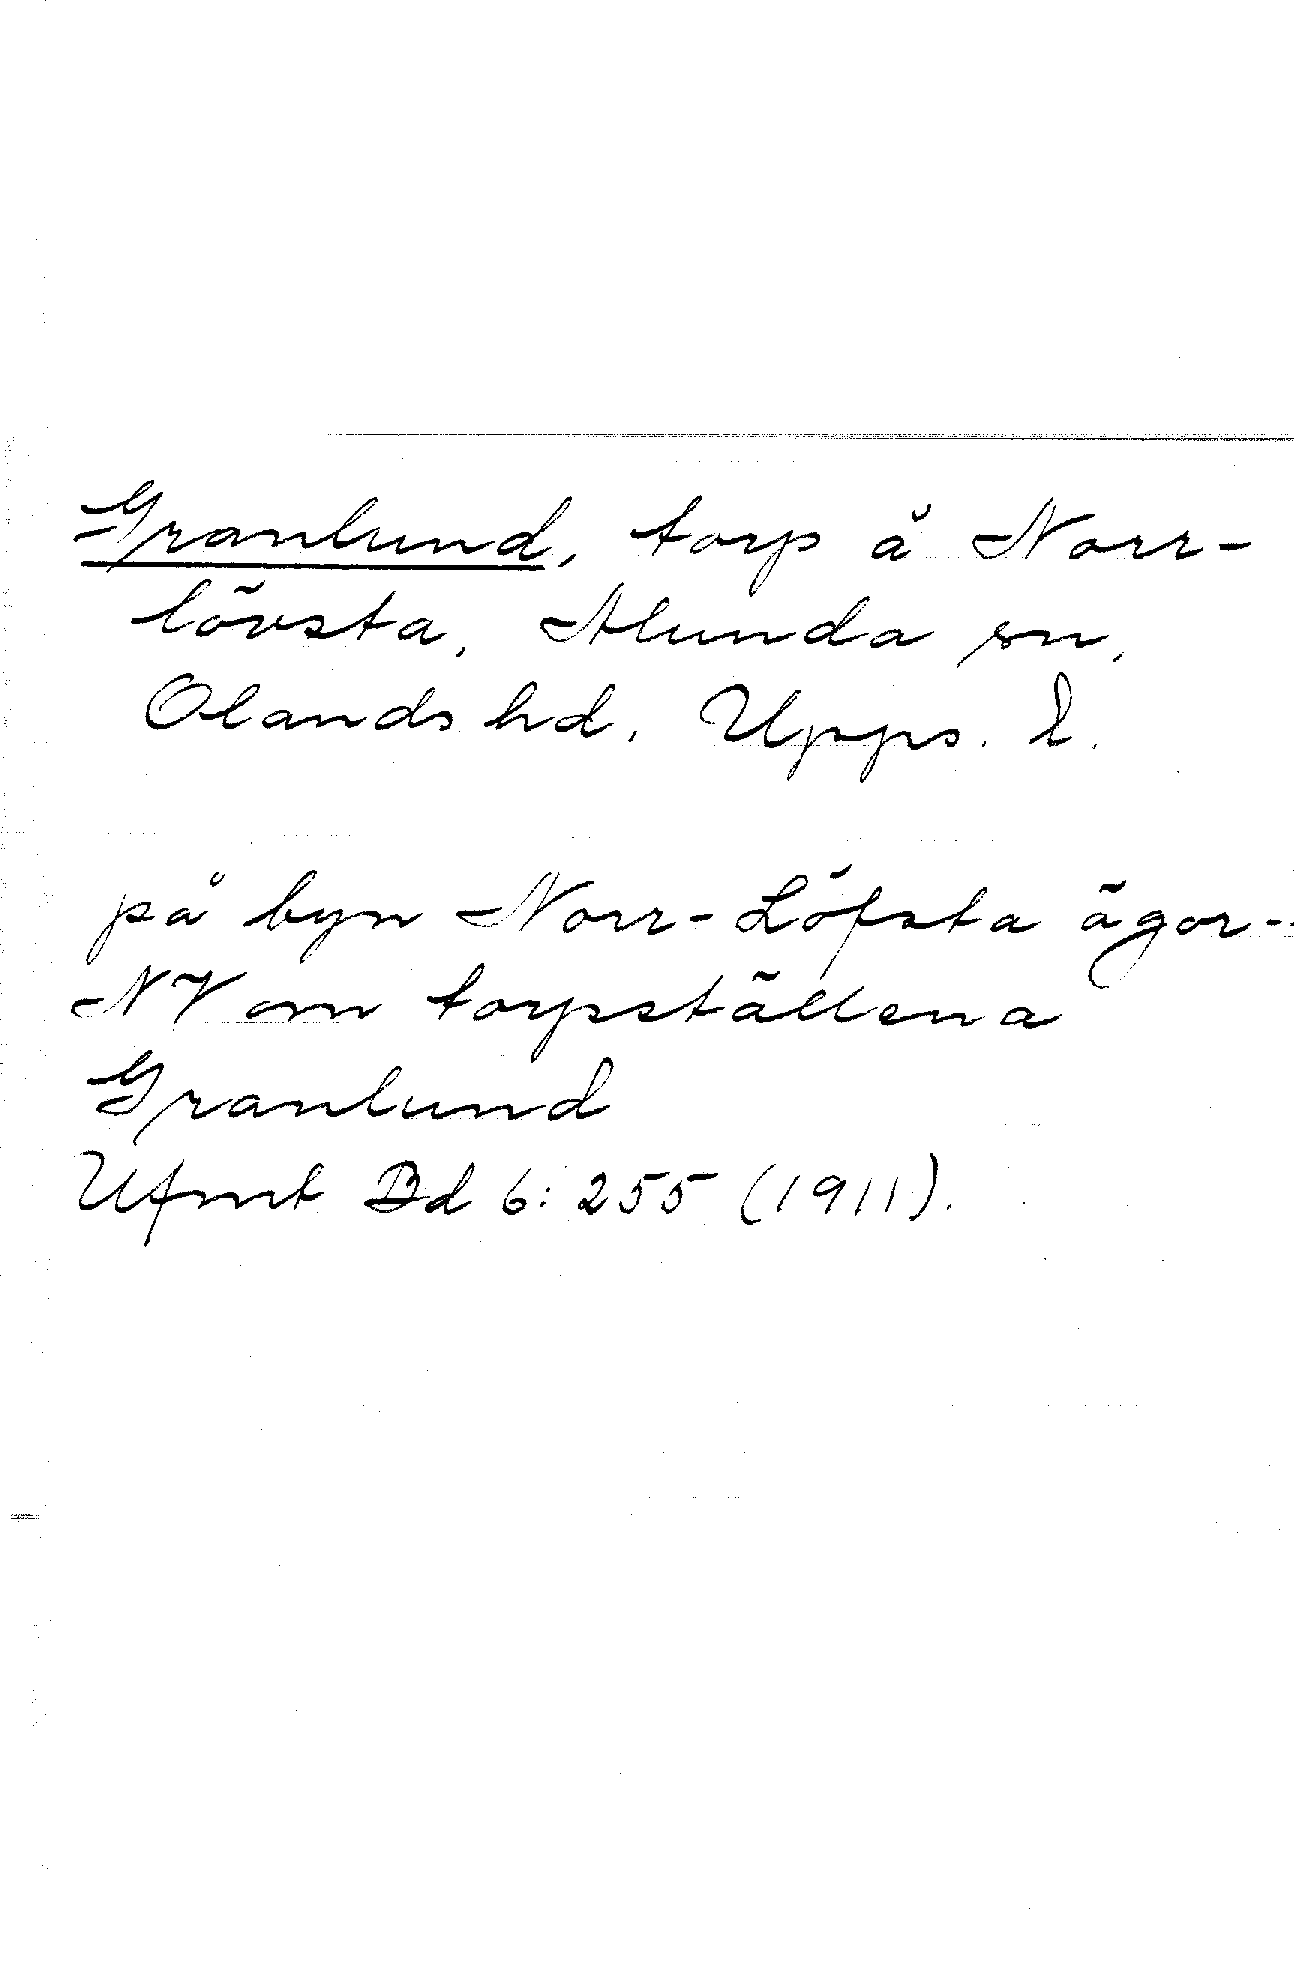 Granlund, torp å Norr-
lövsta, Alunda sn,
Olands hd, Upps. l.
på byn Norr-Löfsta ägor -
NV om torpställena
Granlund
Ufmt Bd 6: 255 (1911).